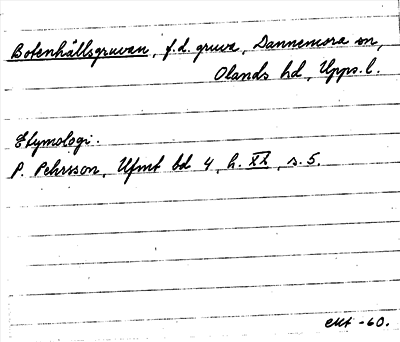 Botenhällsgruvan, f.d. gruva, Dannemora sn,
Olands hd, Upps. l.
Etymologi.
P. Pehrsson, Ufmt bd 4, h. XX, s. 5.
okt -60.